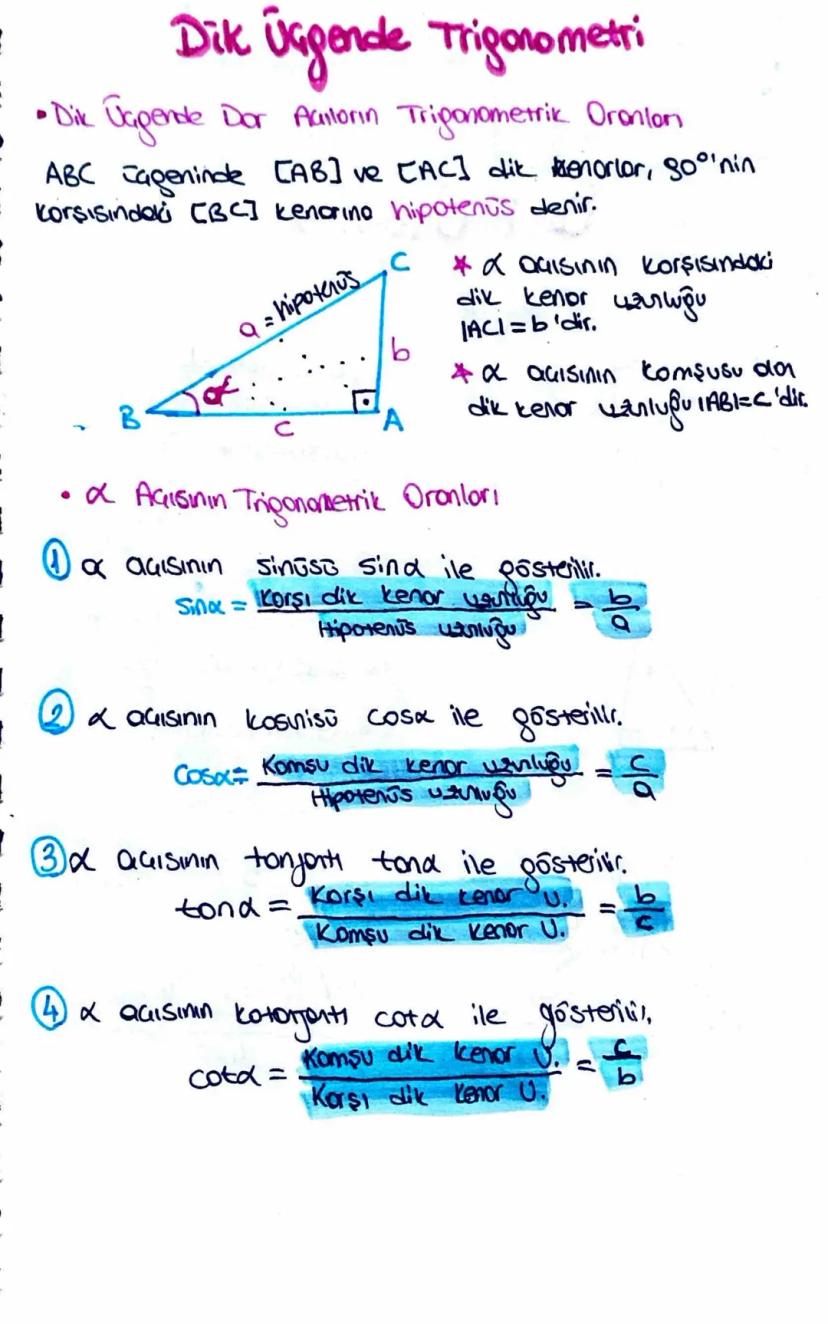 Dik Üçgende Trigonometri
• Dik Üçgende Dar Açıların Trigonometrik Oranları
ABC üçgeninde [AB] ve [AC] dik kenarlar, 90°'nin
karşısındaki [BC] kenarına hipotenüs denir.
C
a = hipotenüs
b
α
B
c
A
* α açısının karşısındaki
dik kenar uzunluğu
|AC| = b'dir.
* α açısının komşusu olan
dik kenar uzunluğu |AB|=c'dir.
• α Açısının Trigonometrik Oranları
① α açısının sinüsü sinα ile gösterilir.
Sinα = Karşı dik kenar uzunluğu / Hipotenüs uzunluğu = b/a
② α açısının kosinüsü cosα ile gösterilir.
Cosα = Komşu dik kenar uzunluğu / Hipotenüs uzunluğu = c/a
③ α açısının tanjantı tanα ile gösterilir.
tanα = Karşı dik kenar U. / Komşu dik kenar U. = b/c
④ α açısının kotanjantı cotα ile gösterilir.
cotα = Komşu dik kenar U. / Karşı dik kenar U. = c/b